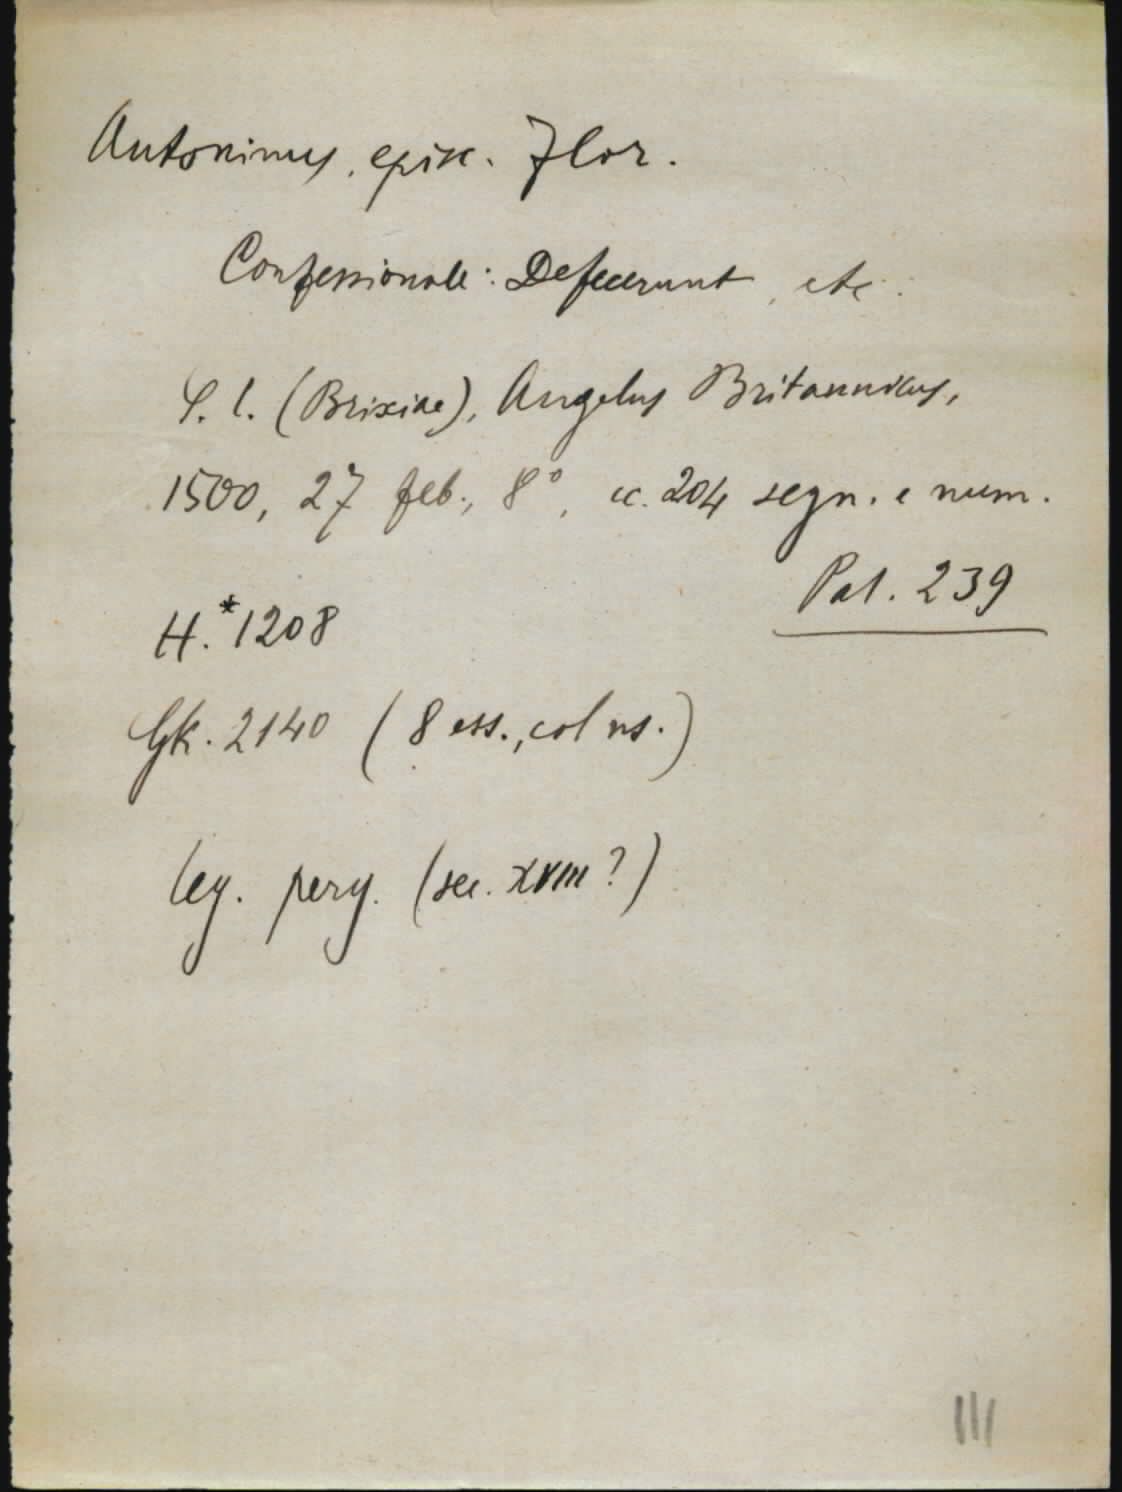 Antoninus, episc. Flor.
Confessionale: Defecerunt, etc.
S. l. (Brixiae), Angelus Britannicus,
1500, 27 feb., 8°, cc. 204 segn. e num.
Pal. 239
H.*1208
Gk. 2140 (8 ess., col ns.)
leg. perg. (sec. XVIII?)
III